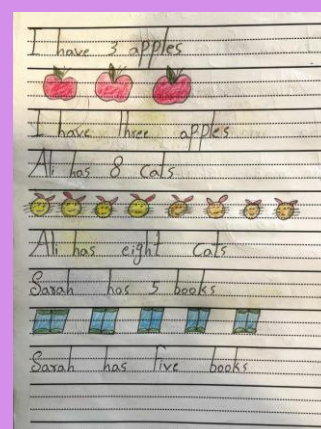 I have 3 apples
I have three apples
Ali has 8 cats.
Ali has eight cats
Sarah has 5 books
Sarah has five books